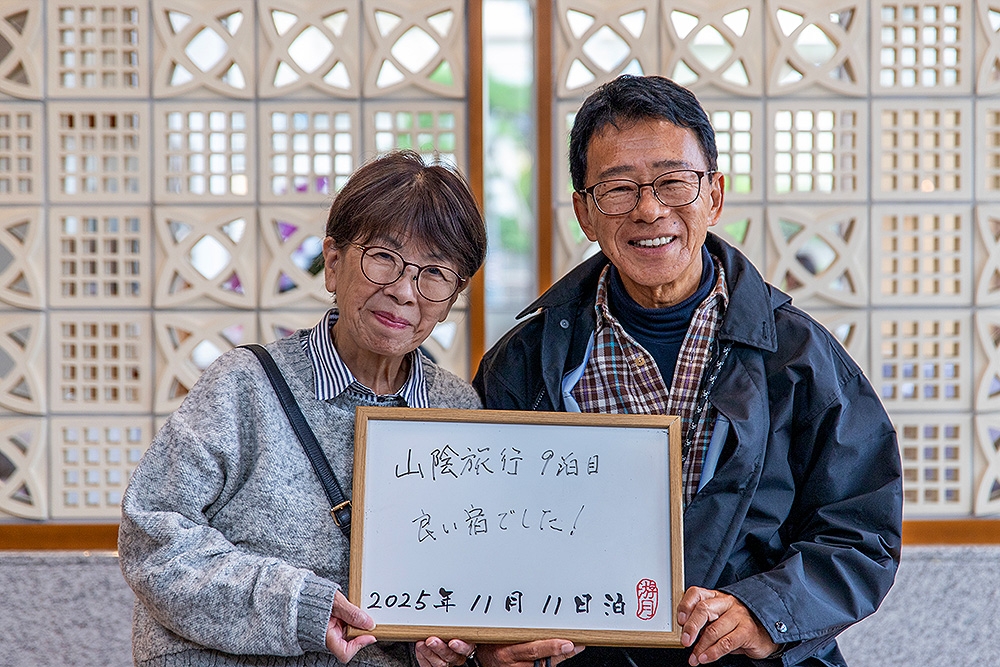 山陰旅行 9泊目
良い宿でした!
2025年 11月 11日泊
游月